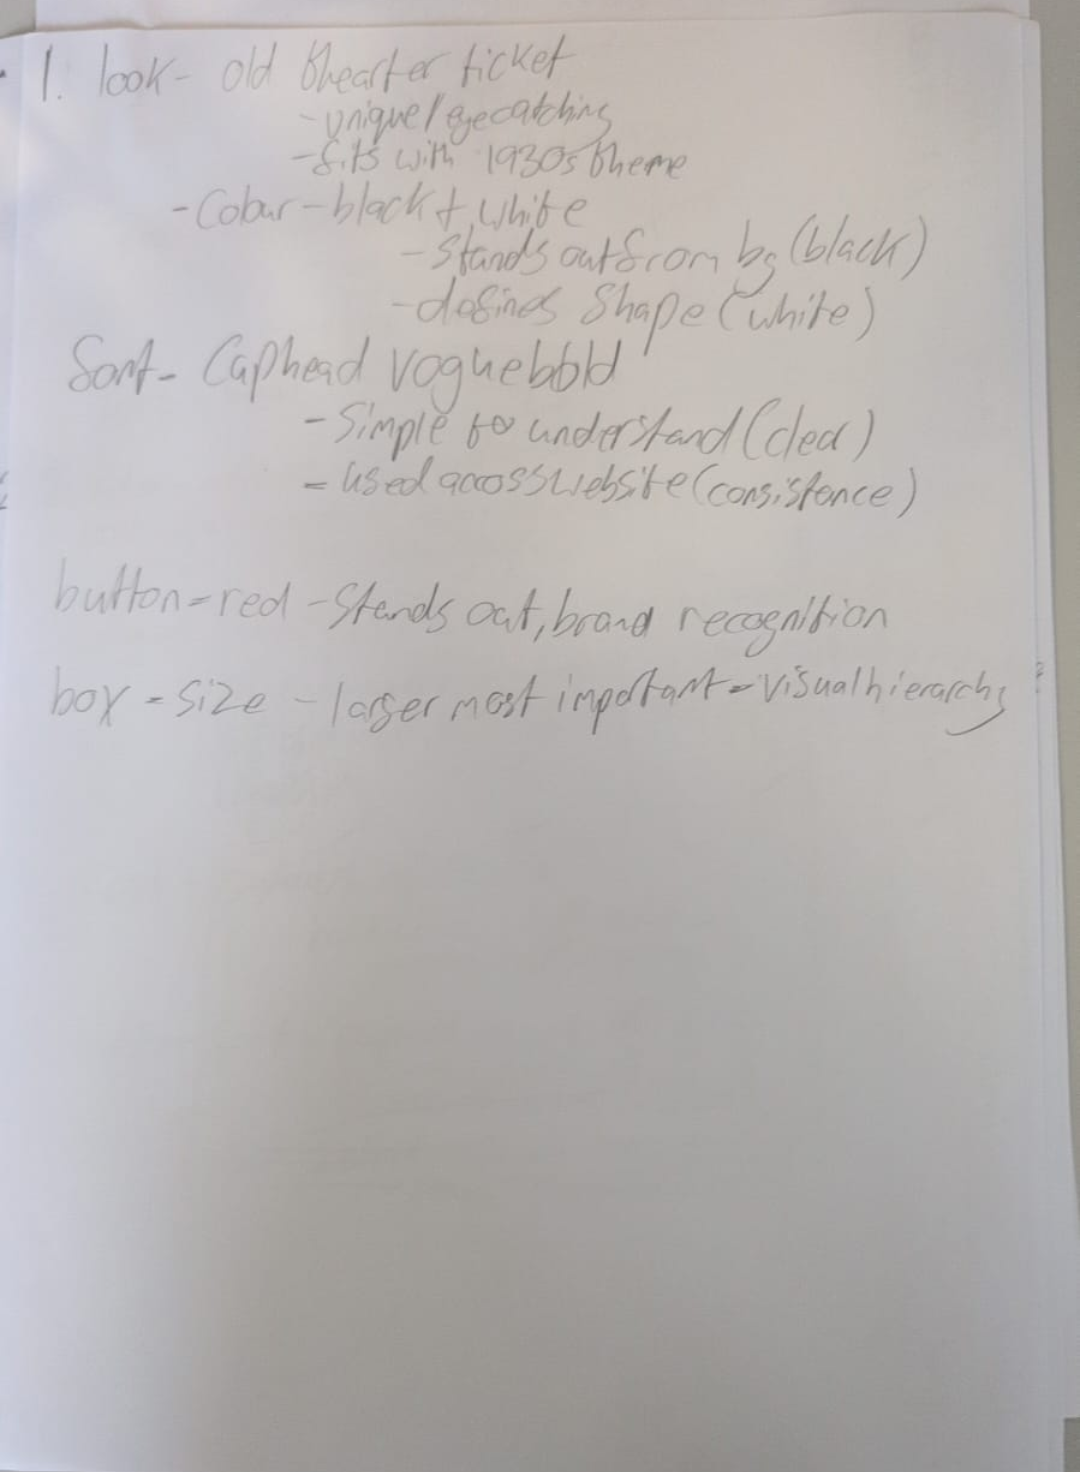 1. look - old thearter ticket
- unique/eyecatching
- fits with 1930s theme
- Colour - black + white
- Stands out from bg (black)
- defines Shape (white)
font - Cuphead voguebold
- Simple to understand (clear)
- used across website (consistence)
button = red - Stands out, brand recognition
box = size - larger most important = visual hierarchy